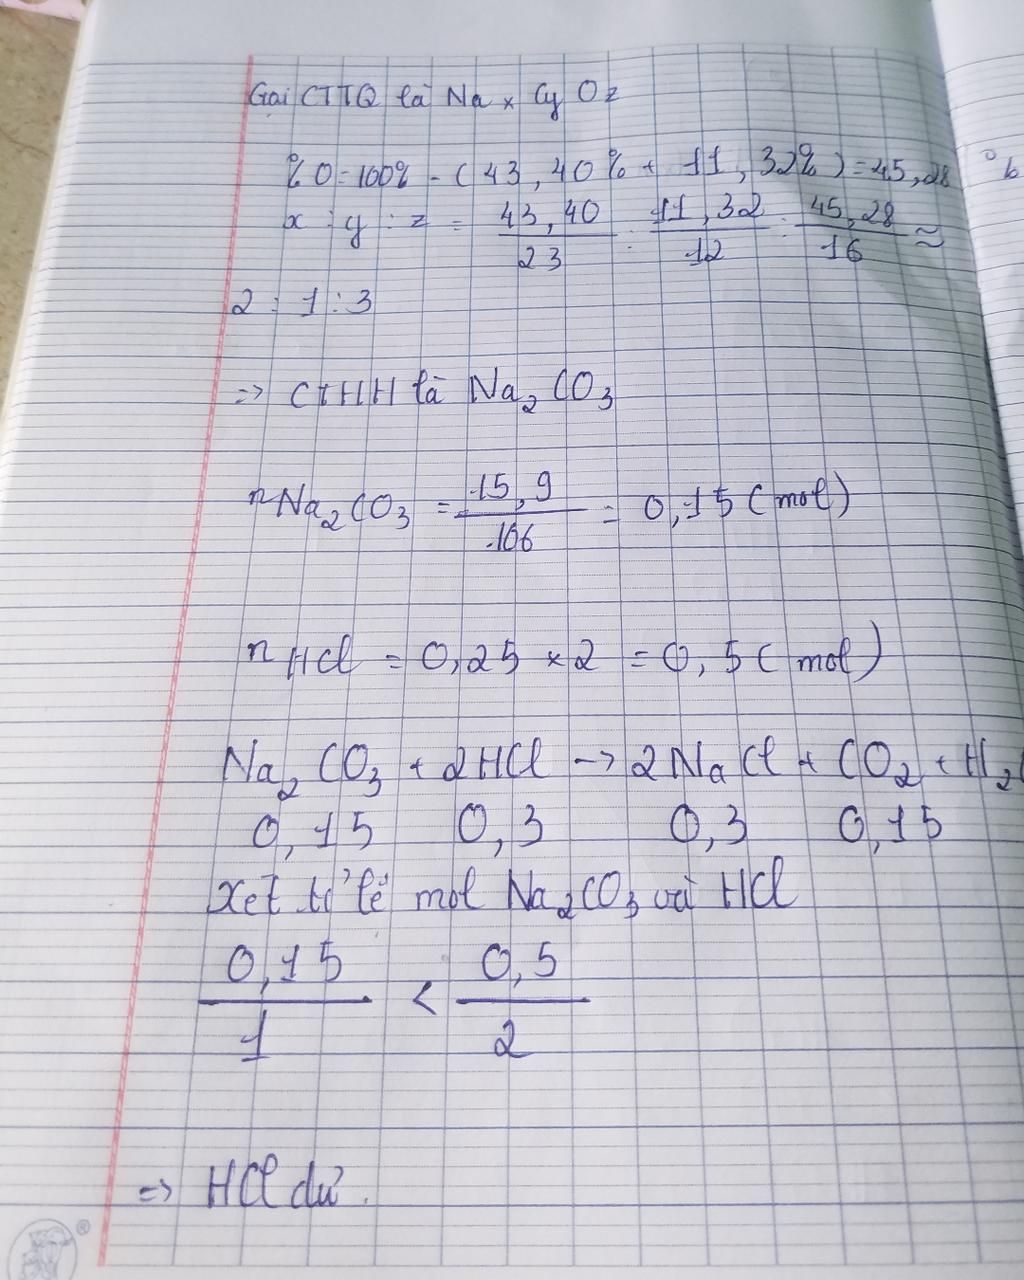 Gọi CTTQ là NaxCyOz
%O=100% - (43,40% + 11,32%)=45,28%
x : y : z = 43,40/23 : 11,32/12 : 45,28/16 ≈
2 : 1 : 3
=> CTHH là Na2CO3
nNa2CO3 = 15,9/106 = 0,15 (mol)
nHCl = 0,25 × 2 = 0,5 (mol)
Na2CO3 + 2HCl -> 2NaCl + CO2 + H2O
0,15 0,3 0,3 0,15
Xét tỉ lệ mol Na2CO3 và HCl
0,15/1 < 0,5/2
=> HCl dư.